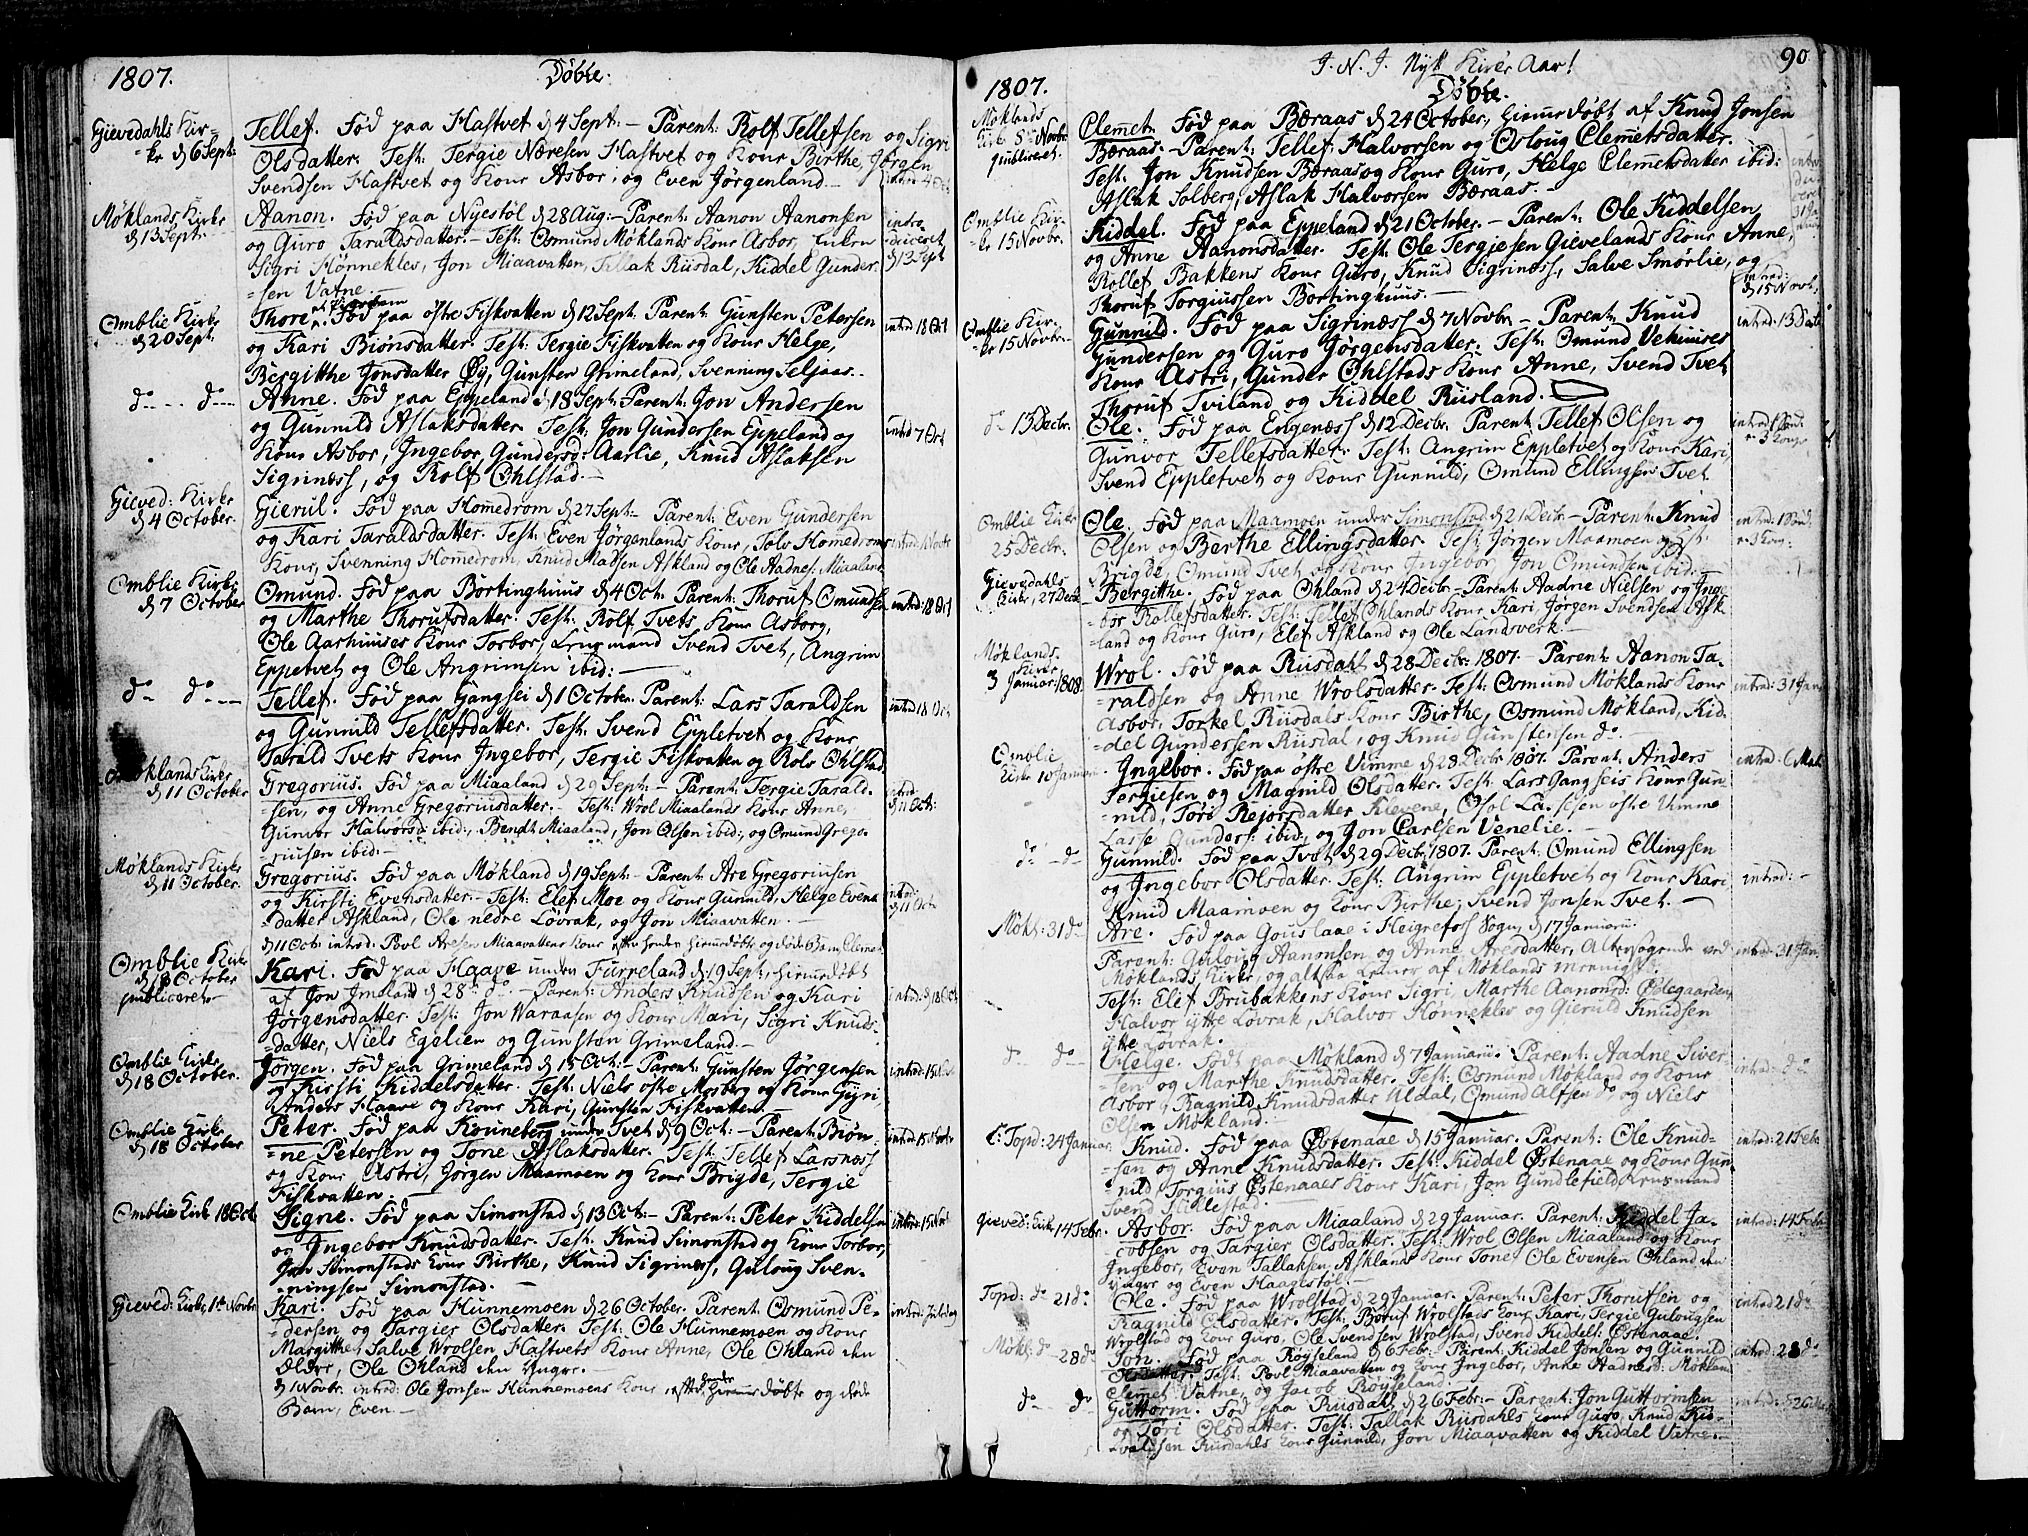 1807.
Døbte.
Gievedahls Kir-
-ke d 6 Sept:
Tellef. Fød paa Hastvet d 4 Sept: - Parent: Rolf Tellefsen og Sigri
Olsdatter. Test: Tergie Næresen Hastvet og Kone Birthe, Jørgen
Svendsen Hastvet og Kone Asbor, og Even Jørgenland.
Møklands Kirke
d 13 Sept:
Aanon. Fød paa Nyestøl d 28 Aug: - Parent: Aanon Aanonsen
og Guro Taraldsdatter. - Test: Osmund Møklands Kone Asbor, Enken
Sigri Hønneklev, Jon Miaavatten, Tellak Riisdal, Kiddel Gunder-
-sen Vatne.
intro-
-duceret
d 13 Sept
Omblie Kirke
d 20 Sept:
Thore. Fød paa østre Fiskvatten d 12 Sept: Parent: Gunsten Petersen
og Kari Biønsdatter. Test: Tergie Fiskvatten og Kone Helge,
Bergitthe Jonsdatter Øy, Gunsten Grimeland, Svenning Seljaas.
introd 18 Oct
do - - do
Anne. Fød paa Eppeland d 18 Sept: Parent: Jon Andersen
og Gunnild Aslaksdatter. Test: Jon Gundersen Eppeland og
Kone Asbor, Ingebor Gundersd: Aarlie, Knud Aslaksen
Sigrinæss, og Rolf Ohlstad.
introd 7 Oct
Gieved: Kirke
d 4 October.
Gierul. Fød paa Homedrom d 27 Sept: - Parent: Even Gundersen
og Kari Taraldsdatter. Test: Even Jørgenlands Kone, Tolv Homedroms
Kone, Svenning Homedrom, Knud Madsen Askland og Ole Aadnes: Miaaland
introd: 1 Novbr
Omblie Kirke
d 7 October
Omund. Fød paa Bortinghuus d 4 Oct: Parent: Thoruf Omundsen
og Marthe Thorufsdatter. Test: Rolf Tvets Kone Asborg,
Ole Aashuuses Kone Torbor, Lensmand Svend Tvet, Angrim
Eppetvet og Ole Angrimsen ibid:
introd: 18 Oct
do do
Tellef. Fød paa Gangsei d 1 October. Parent: Lars Taraldsen
og Gunnild Tellefsdatter. Test: Svend Eppletvet og Kone
Tarald Tvets Kone Ingebor, Tergie Fiskvatten og Rolv Ohlstad.
introd 18 Oct
Møklands Kirke
d 11 October
Gregorius. Fød paa Miaaland d 29 Sept: - Parent: Tergie Tarald-
-sen, og Anne Gregoriusdatter. - Test: Wrol Miaalands Kone Anne,
Gunvor Halvorsd: ibid:, Bendt Miaaland, Jon Olsen ibid:, og Omund Grego-
-riusen ibid: -
introd:
d 11 Oct:
Møklands Kirke
d 11 October.
Gregorius. Fød paa Møkland d 19 Sept: - Parent: Are Gregoriusen
og Kirsti Evensdatter. - Test: Elef Moe og Kone Gunnild, Helge Evens-
-datter Askland, Ole nedre Løvrak, og Jon Miaavatten.
d 11 Oct: introd: Povl Aresen Miaavattens Kone efter hendes hiemmedøbte og døde Barn, Clemet
introd:
d 11 Octr
Omblie Kirke
d 18 October
publiceret.
Kari. Fød paa Haave under Furreland d 19 Sept: hiemmedøbt
af Jon Imeland d 28 do. - Parent: Anders Knudsen og Kari
Jørgensdatter. Test: Jon Waraasen og Kone Mari, Sigri Knuds-
-datter, Niels Egelien og Gunsten Grimeland.
introd: d 18 Oct
Omblie Kirke
d 18 October.
Jørgen. Fød paa Grimeland d 15 Oct: - Parent: Gunsten Jørgensen
og Kirsti Kiddelsdatter. Test: Niels østre Mosberg og Kone Gyri,
Anders Haave og Kone Kari, Gunsten Fiskvatten.
introd: 15
Omblie Kirke
d 18 October
Peter. Fød paa Kouneberg under Tvet d 9 Oct: - Parent: Biøn-
-ne Petersen og Tone Aslaksdatter. Test: Tellef Larsnæss
og Kone Astri, Jørgen Maamoen og Kone Brigde, Tergie
Fiskvatten.
introd: 15 Novbr
Omblie Kirk 18 Oct:
Signe. Fød paa Simonstad d 13 Oct: - Parent: Peter Kiddelsen
og Ingebor Knudsdatter. Test: Knud Simonstad og Kone Torbor,
Jon Simonstads Kone Birthe, Knud Sigrinæss, Guloug Sven-
-ningsen Simonstad.
introd: 15 Nov
Gieved: Kirke 1ste Novbr
Kari. Fød paa Hunnemoen d 26 October. Parent: Osmund Pe-
-dersen og Targier Olsdatter. Test: Ole Hunnemoen og Kone
Margitthe, Salve Wrolsen Hastvets Kone Anne, Ole Ohland den
Ældre, Ole Ohland den Yngre.
d 1 Novbr. introd: Ole Jonsen Hunnemoens Kone efter hendes hiemmedøbte og døde
Barn, Even -
J. N. J. Nytt Kirke Aar!
90
1807.
Døbte.
Møklands
Kirk 8de Novbr
publiceret.
Clemet. Fød paa Bæraas d 24 October, hiemmedøbt af Knud Jonsen
Bæraas. - Parent: Tellef Halvorsen og Osloug Clemetsdatter.
Test: Jon Knudsen Bæraas og Kone Guro, Helge Clemetsdatter ibid:
Aslak Solberg, Aslak Halvorsen Bæraas. -
Omblie Kir-
-ke 15 Novbr.
Kiddel. Fød paa Eppeland d 21 October. - Parent: Ole Kiddelsen
og Anne Aanonsdatter. Test: Ole Tergiesen Gievelands Kone Anne,
Rollef Bakkens Kone Guro, Knud Sigrinæss, Salve Smorlie, og
Thoruf Torgiussen Bortinghuus. -
introd:
d 15 Novbr.
Omblie Kir-
-ke 15 Novbr.
Gunnild. Fød paa Sigrinæss d 7 Novbr - Parent: Knud
Gundersen og Guro Jørgensdatter. Test: Omund Vehuuses
Kone Astri, Gunder Ohlstads Kone Anne, Svend Tvet
Thoruf Tviland og Kiddel Riisland.
introd: 13 Decbr
do 13 Decbr.
Ole. Fød paa Engenæss d 12 Decbr. Parent: Tellef Olsen og
Gunvor Tellefsdatter. Test: Angrim Eppletvet og Kone Kari,
Svend Eppletvet og Kone Gunnild, Omund Ellingsen Tvet
introd: 1 Sønd:
e. 3 Kong.
Omblie Kirke
25 Decbr.
Ole. Fød paa Maamoen under Simonstad d 21 Decbr - Parent: Knud
Olsen og Berthe Ellingsdatter. Test: Jørgen Maamoen og
Brigde, Omund Tvet og Kone Ingebor, Jon Omundsen ibid: -
introd: 1 Sønd:
e. 3 Kong:
Gievedahls
Kirke, 27 Decbr
Bergitthe. Fød paa Ohland d 24 Decbr - Parent: Aadne Nielsen og Inge-
-bor Rollefsdatter. Test: Tellef Ohlands Kone Kari, Jørgen Svendsen Ask-
-land og Kone Guro, Elef Askland og Ole Landsverk. -
Møklands
Kirke
3 Januar: 1808.
Wrol. Fød paa Riisdahl d 28 Decbr: 1807. - Parent: Aanon Ta-
-raldsen og Anne Wrolsdatter. Test: Osmund Møklands Kone
Asbor, Torkel Riisdals Kone Birthe, Osmund Møkland, Kid-
-del Gundersen Riisdal, og Knud Gunstensen do. -
introd: 31 Jan
Omblie
Kirke 10 Januar.
Ingebor. Fød paa østre Vimme d 28 Decbr 1807. Parent: Anders
Tergiesen og Magnild Olsdatter. Test: Lars Gangseis Kone Gun-
-nild, Tøri Rejorsdatter Klevene, Osol Lassesen østre Vimme
Lasse Gunders: ibid:, og Jon Carlsen Venelie. -
introd: 6 Mart
do - do
Gunnild. Fød paa Tvet d 29 Decbr 1807. Parent: Omund Ellingsen
og Ingebor Olsdatter. Test: Angrim Eppletvet og Kone Kari,
Knud Maamoen og Kone Birthe, Svend Jonsen Tvet. -
introd: -
Møkl: 31 do
Are. Fød paa Gouslaae i Heigrefos Sogn, d 17 Januarii.
Parent: Guloug Aanonsen og Anne Aresdatter, Altersøgende ved
Møklands Kirke, og altsaa Lemer af Møklands Menighed.
Test: Elef Brubakkens Kone Sigri, Marthe Aanonsd: Ødegaarden,
Halvor ytre Løvrak, Halvor Hønneklev og Gieruld Knudsen
ytre Løvrak.
introd: 31 Jan
do do
Helge. Født paa Møkland d 7 Januarii. Parent: Aadne Siver-
-sen og Marthe Knudsdatter. Test: Osmund Møkland og Kone
Asbor, Ragnild Knudsdatter Uldal, Omund Alfsen do og Niels
Olsen Møkland.
introd: do
C: Topd: 24 Januar.
Knud. Fød paa Østenaae d 15 Januar. Parent: Ole Knud-
-sen og Anne Knudsdatter. Test: Kiddel Østenaae og Kone Gun-
-nild, Torgius Østenaaes Kone Kari, Jon Gundlefield, Lensmand
Svend Hillestad.
introd: 21 Febr
Gieved: Kirk 14 Febr.
Asbor. Fød paa Miaaland d 29 Januar. Parent: Kiddel Ja-
-cobsen og Targier Olsdatter. Test: Wrol Olsen Miaaland og Kone
Ingebor, Even Tallaksen Asklands Kone Tone, Ole Evensen Ohland den
Yngre og Even Haagestøl. -
introd: 14 Febr
Topd: do 21 do
Ole. Fød paa Wrolstad d 29 Januar. Parent: Peter Thorufsen og
Ragnild Olsdatter. Test: Boruf Wrolstads Kone Kari, Tergie Gulougsen
Wrolstad og Kone Guro, Ole Svendsen Wrolstad, Svend Kiddels: Østenaae.
introd 21 do
Møkl: do 28 do
Jon. Fød paa Røyseland d 6 Febr: Parent: Kiddel Jonsen og Gunnild
Olsdatter. Test: Povl Miaavatten og Kone Ingebor, Anne Aadnesd: Møkland
Clemet Vatne, og Jacob Røyseland.
introd: 28 do
do do
Guttorm. Fød paa Riisdahl d 26 Febr: - Parent: Jon Guttormsen
og Tøri Olsdatter. Test: Tallak Riisdahls Kone Guro, Knud Kid-
-valdsen Riisdahls Kone Gunnild, Jon Miaavatten og Kiddel Vatne. -